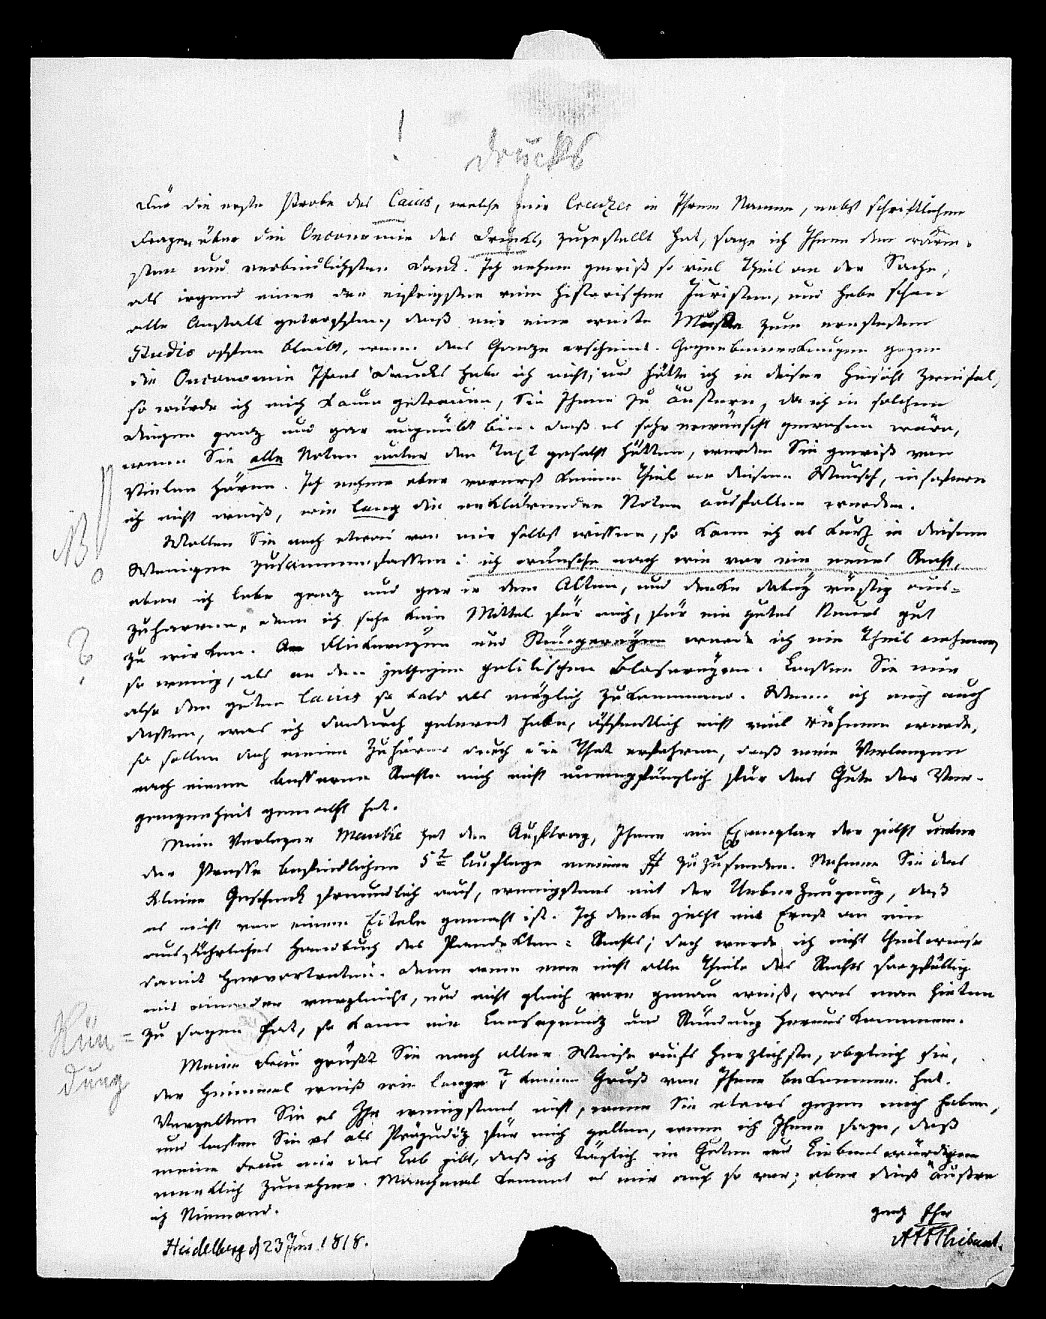 !
Drucks
Für die erste Probe des Caius, welche mir Creuzer in Ihrem Namen, nebst schriftlichen
Fragen über die Oeconomie des Drucks, zugestellt hat, sage ich Ihnen den wärm-
sten und verbindlichsten Dank. Ich nehme gewiß so viel Theil an der Sache,
als irgend einer der eifrigsten rein historischen Juristen, und habe schon
alle Anstalt getroffen, daß mir eine weite Muße zum ernstesten
Studio offen bleibt, wenn das Ganze erscheint. Gegenbemerkungen gegen
die Oeconomie Ihres Drucks habe ich nicht; und hätte ich in dieser Hinsicht Zweifel,
so würde ich mich kaum getrauen, sie Ihnen zu äußern, da ich in solchen
Dingen ganz und gar ungeübt bin. Daß es sehr erwünscht gewesen wäre,
wenn Sie alle Noten unter den Text gesetzt hätten, werden Sie gewiß von
Vielen hören. Ich nehme aber vorerst keinen Theil an diesem Wunsch, insofern
ich nicht weiß, wie lang die erklärenden Noten ausfallen werden.
NB
Wollen Sie noch etwas von mir selbst wissen, so kann ich es kurz in diesem
Wenigen zusammenfassen: ich wünsche nach wie vor ein neues Recht,
aber ich lebe ganz und gar in dem Alten, und denke dabey rüstig aus-
zuharren, denn ich sehe kein Mittel für mich, für ein gutes Neues gut
?
zu wirken. An Flickereyen und Neugereyen werde ich nie Theil nehmen,
so wenig, als an den politischen Blasereyen. Lassen Sie nur
also den guten Caius so bald als möglich zukommen. Wenn ich mich auch
dessen, was ich dadurch gelernt habe, öffentlich nicht viel rühmen werde,
so sollen doch meine Zuhörer durch die That erfahren, daß mein Verlangen
nach einem besseren Rechte mich nicht unempfänglich für das Gute der Ver-
gangenheit gemacht hat.
Mein Verleger Mauke hat den Auftrag, Ihnen ein Exemplar der jetzt unter
der Presse befindlichen 5t Auflage meiner ff zuzusenden. Nehmen Sie das
kleine Geschenk freundlich auf, wenigstens mit der Ueberzeugung, daß
es nicht von einem Eiteln gemacht ist. Ich denke jetzt mit Ernst an ein
ausführliches Handbuch des Pandekten-Rechts; doch werde ich nicht theilweise
damit hervortreten. Denn wenn man nicht alle Theile des Rechts sorgfältig
mit einander vergleicht, und nicht gleich vorn genau weiß, was man hinten
Kün-
dung
zu sagen hat, so kann nie und Ründung herauskommen.
Meine Frau grüßt Sie nach alter Weise aufs herzlichste, obgleich sie,
der Himmel weiß wie lange? keinen Gruß von Ihnen bekommen hat.
Vergelten Sie es Ihr wenigstens nicht, wenn Sie etwas gegen mich haben,
und lassen Sie es als Präjudiz für mich gelten, wenn ich Ihnen sage, daß
meine Frau mir das Lob gibt, daß ich täglich im Guten und Liebenswürdigen
merklich zunehme. Manchmal kommt es mir auch so vor; aber dieß äußre
ich Niemand.
ganz Ihr
Heidelberg d 23 Jun. 1818.
AFJThibaut.